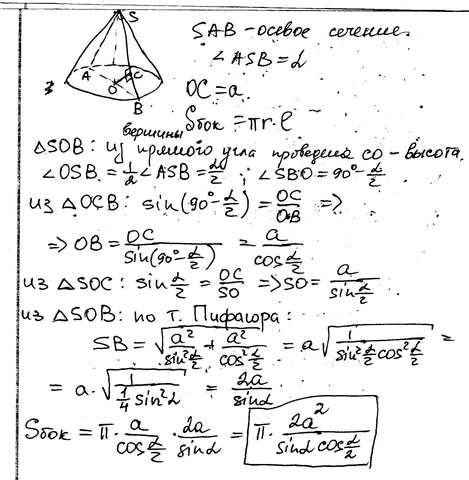 S
A
B
C
O
B
З
SAB - осевое сечение.
∠ASB = α
OC = a
Sбок = πr·l
вершины
△SOB: из прямого угла проведена CO - высота.
∠OSB = 1/2 ∠ASB = α/2; ∠SBO = 90° - α/2
из △OCB: sin(90° - α/2) = OC/OB =>
=> OB = OC/sin(90° - α/2) = a/cos α/2
из △SOC: sin α/2 = OC/SO => SO = a/sin α/2
из △SOB: по т. Пифагора:
SB = √(a²/sin² α/2 + a²/cos² α/2) = a√(1/(sin² α/2 cos² α/2)) =
= a·√(1/(1/4 sin² α)) = 2a/sin α
Sбок = π · a/cos α/2 · 2a/sin α = π · 2a²/(sin α cos α/2)